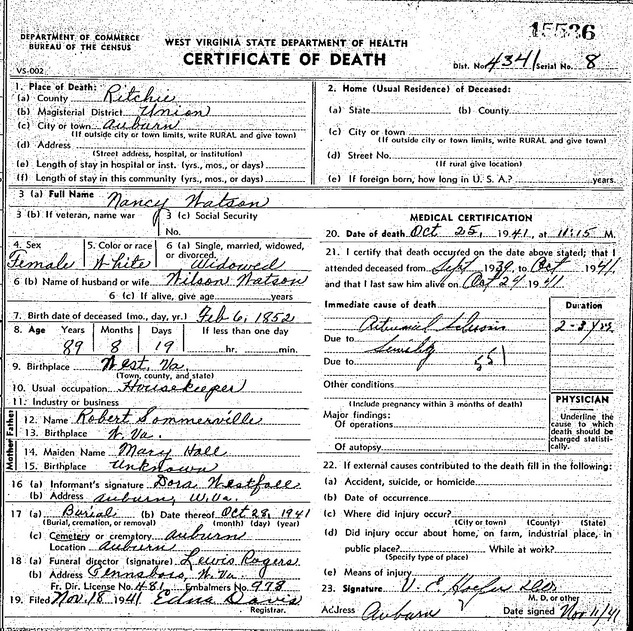 15536
DEPARTMENT OF COMMERCE
BUREAU OF THE CENSUS
WEST VIRGINIA STATE DEPARTMENT OF HEALTH
CERTIFICATE OF DEATH
Dist. No. 4341 Serial No. 8
VS-002
1. Place of Death:
(a) County Ritchie
(b) Magisterial District Union
(c) City or town Auburn
(If outside city or town limits, write RURAL and give town)
(d) Address
(Street address, hospital, or institution)
(e) Length of stay in hospital or inst. (yrs., mos., or days)
(f) Length of stay in this community (yrs., mos., or days)
2. Home (Usual Residence) of Deceased:
(a) State (b) County
(c) City or town
(If outside city or town limits, write RURAL and give town)
(d) Street No.
(If rural give location)
(e) If foreign born, how long in U. S. A.? years.
3 (a) Full Name Nancy Watson
3 (b) If veteran, name war 3 (c) Social Security No.
4. Sex Female
5. Color or race White
6 (a) Single, married, widowed, or divorced. Widowed
6 (b) Name of husband or wife Wilson Watson
6 (c) If alive, give age years
7. Birth date of deceased (mo., day, yr.) Feb 6, 1852
8. Age Years Months Days If less than one day
89 8 19 hr. min.
9. Birthplace West. Va.
(Town, county, and state)
10. Usual occupation Housekeeper
11. Industry or business
Father
12. Name Robert Sommerville
13. Birthplace W. Va.
Mother
14. Maiden Name Mary Hall
15. Birthplace Unknown
16 (a) Informant's signature Dora Westfall
(b) Address Auburn, W. Va.
17 (a) Burial (b) Date thereof Oct 28, 1941
(Burial, cremation, or removal) (month) (day) (year)
(c) Cemetery or crematory Auburn
Location Auburn
18 (a) Funeral director (signature) Lewis Rogers
(b) Address Pennsboro, W. Va.
Fr. Dir. License No. 481 Embalmers No. 978
19. Filed Nov. 18 1941 Edna Davis
Registrar.
MEDICAL CERTIFICATION
20. Date of death Oct 25, 1941, at 11:15 M.
21. I certify that death occurred on the date above stated; that I
attended deceased from Sept 1939, to Oct 1941,
and that I last saw him alive on Oct 24 1941.
Immediate cause of death Duration
2-3 yrs.
Due to Senility
Due to
Other conditions
(Include pregnancy within 3 months of death)
Major findings:
Of operations
Of autopsy
PHYSICIAN
Underline the cause to which death should be charged statistically.
22. If external causes contributed to the death fill in the following:
(a) Accident, suicide, or homicide
(b) Date of occurrence
(c) Where did injury occur?
(City or town) (County) (State)
(d) Did injury occur about home, on farm, industrial place, in
public place? While at work?
(Specify type of place)
(e) Means of injury
23. Signature
M. D. or other
Address Auburn Date signed Nov 11/41